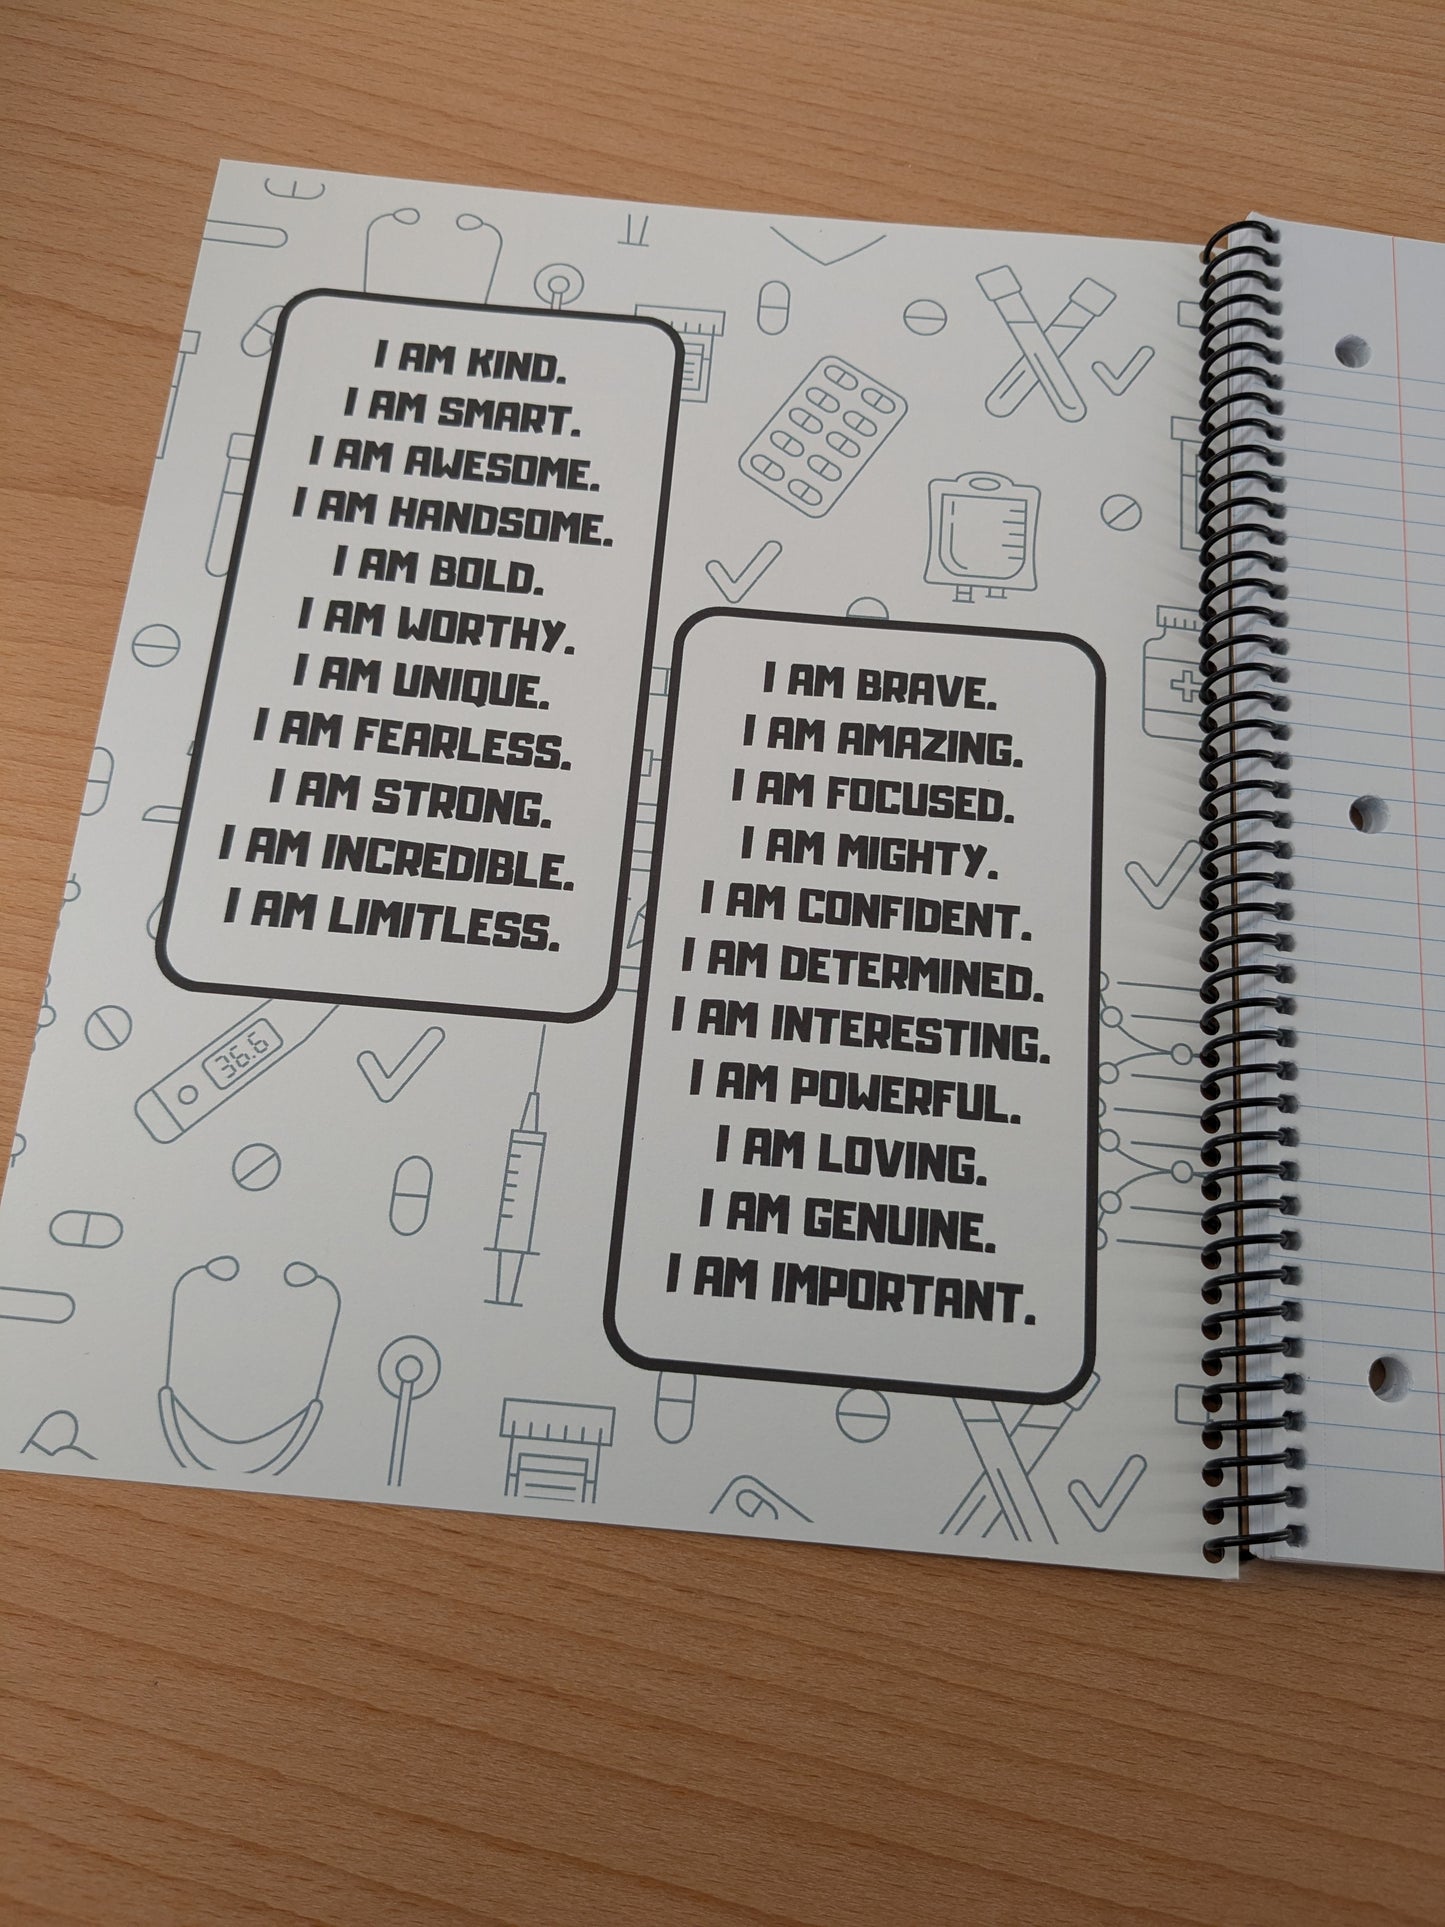 I AM KIND.
I AM SMART.
I AM AWESOME.
I AM HANDSOME.
I AM BOLD.
I AM WORTHY.
I AM UNIQUE.
I AM FEARLESS.
I AM STRONG.
I AM INCREDIBLE.
I AM LIMITLESS.
I AM BRAVE.
I AM AMAZING.
I AM FOCUSED.
I AM MIGHTY.
I AM CONFIDENT.
I AM DETERMINED.
I AM INTERESTING.
I AM POWERFUL.
I AM LOVING.
I AM GENUINE.
I AM IMPORTANT.
36.6